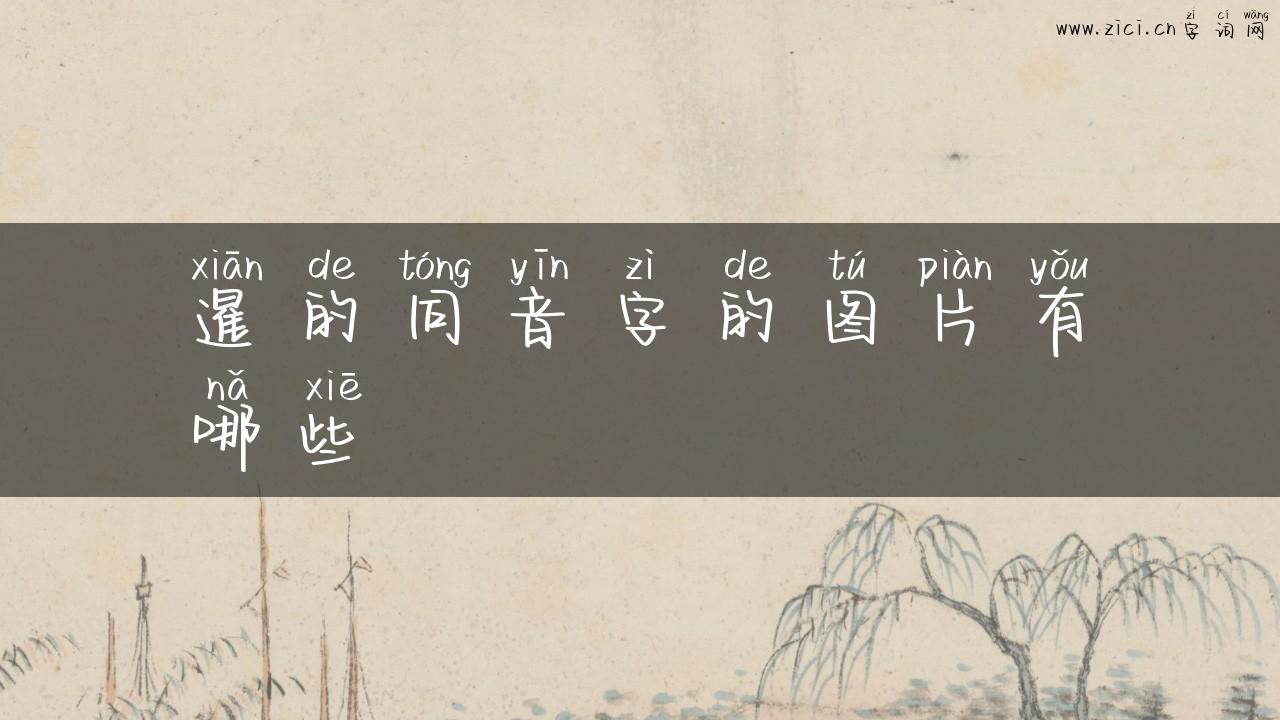 zì cí wǎng
www.zici.cn 字 词 网
xiān de tóng yīn zì de tú piàn yǒu
暹 的 同 音 字 的 图 片 有
nǎ xiē
哪 些